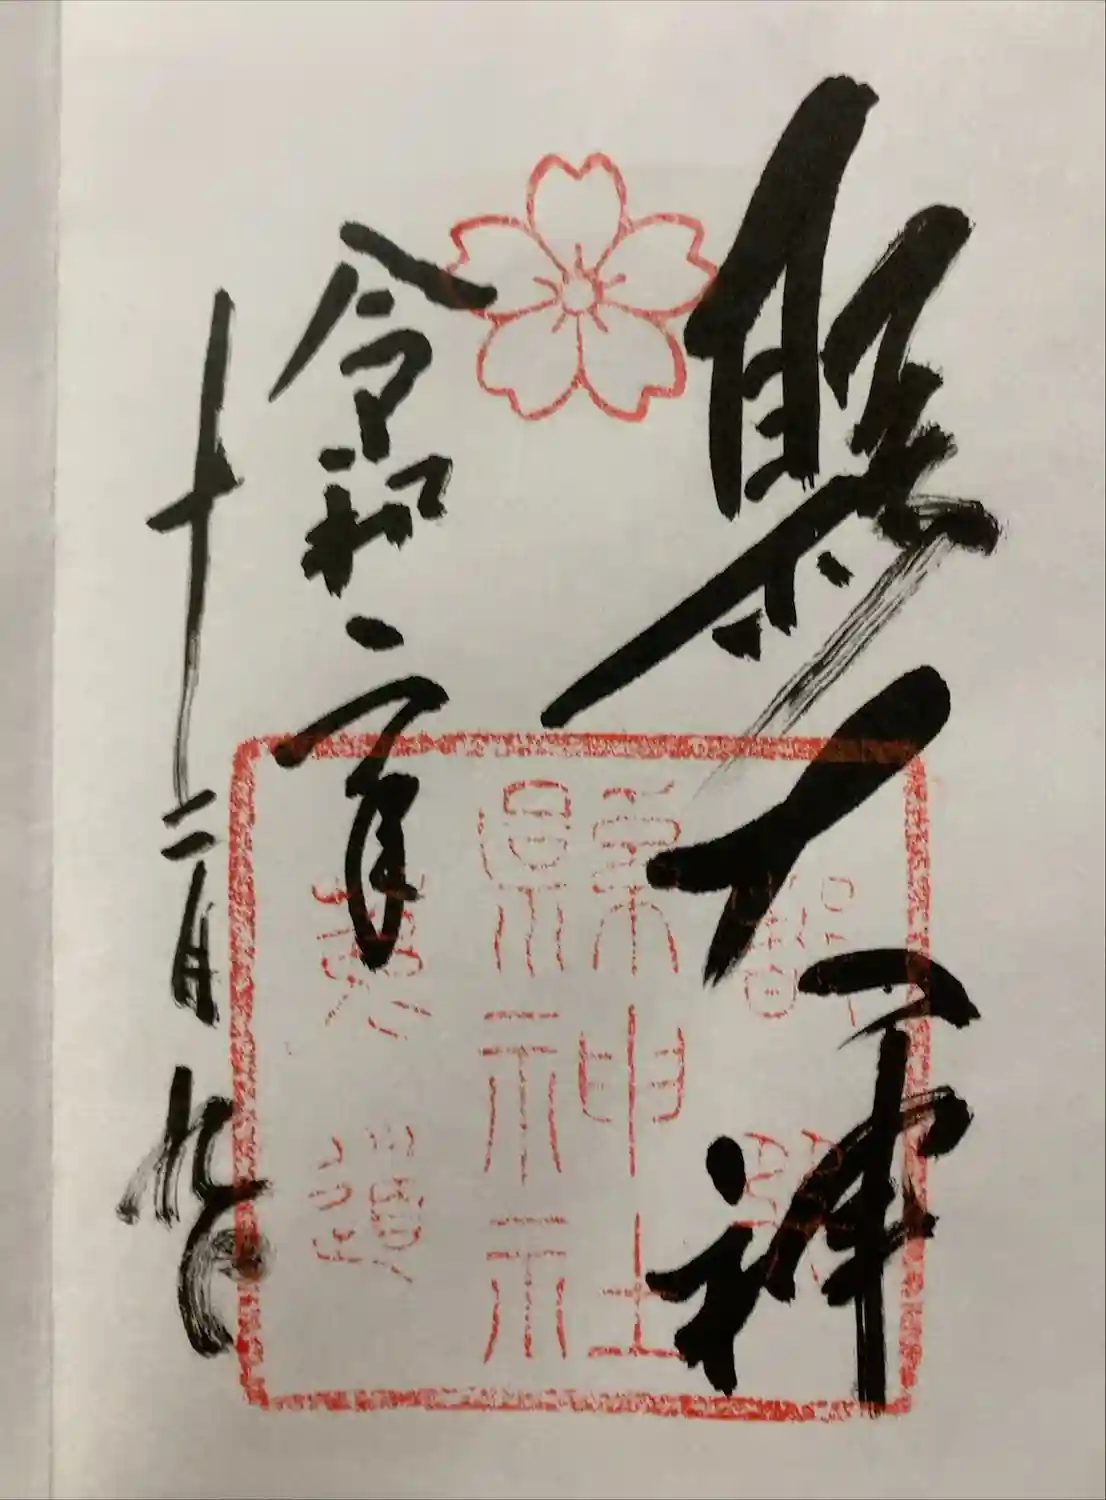 縣大神
令和二年
十二月九日
縣神社